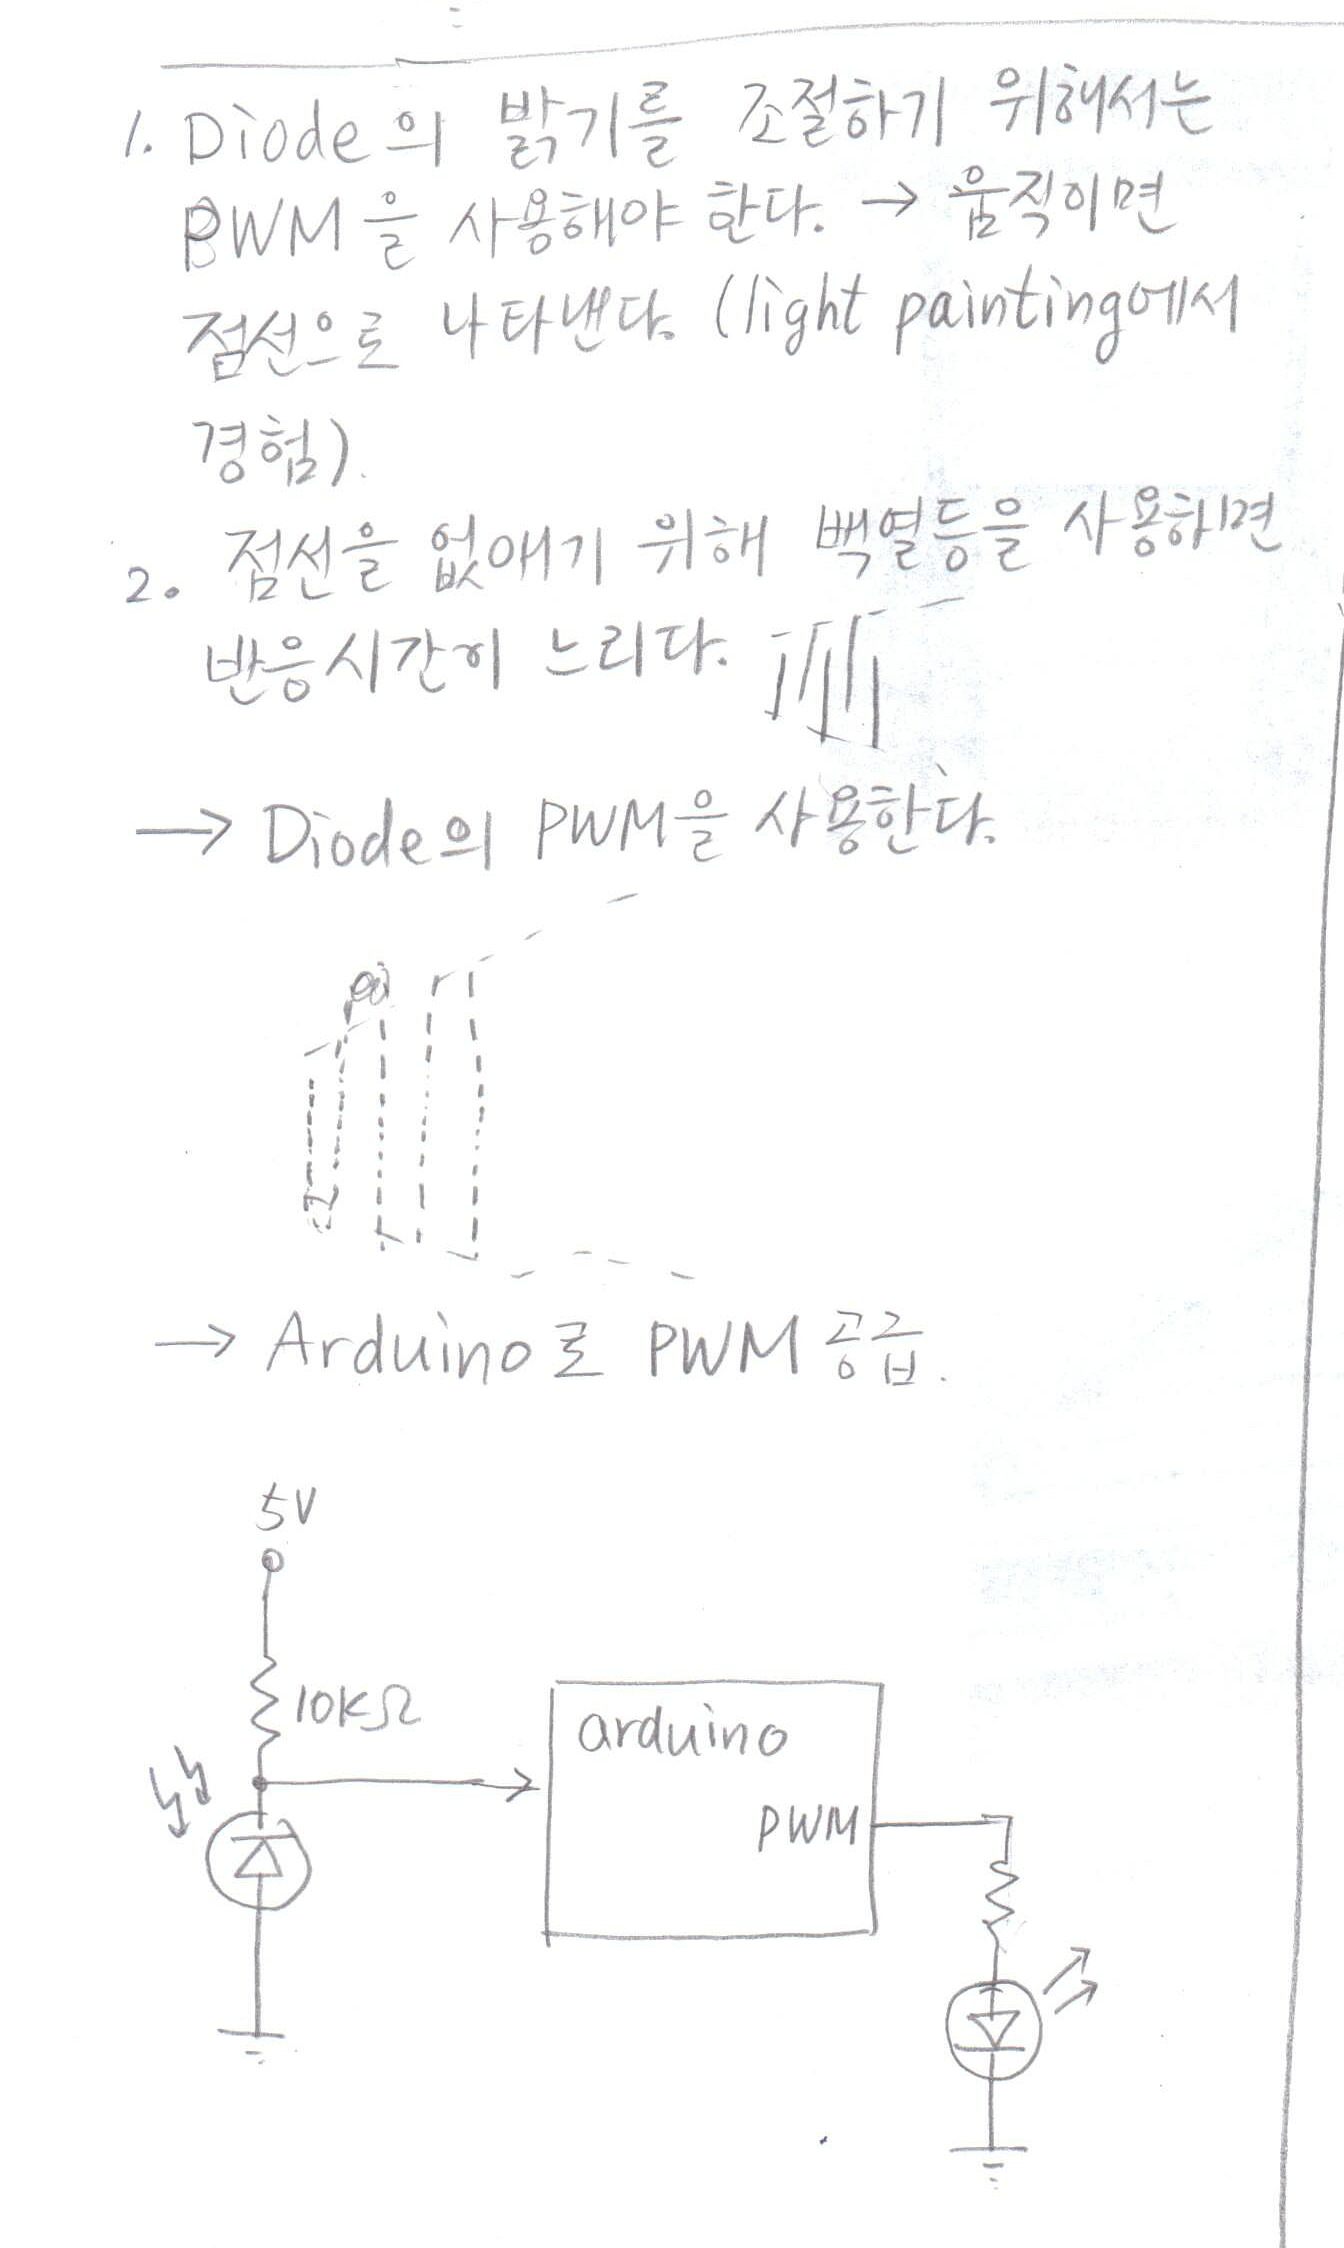 1. Diode의 밝기를 조절하기 위해서는
PWM을 사용해야 한다. → 움직이면
점선으로 나타낸다. (light painting에서
경험).
2. 점선을 없애기 위해 백열등을 사용하면
반응시간이 느리다.
→ Diode의 PWM을 사용한다.
→ Arduino로 PWM 공급.
5V
10kΩ
arduino
PWM